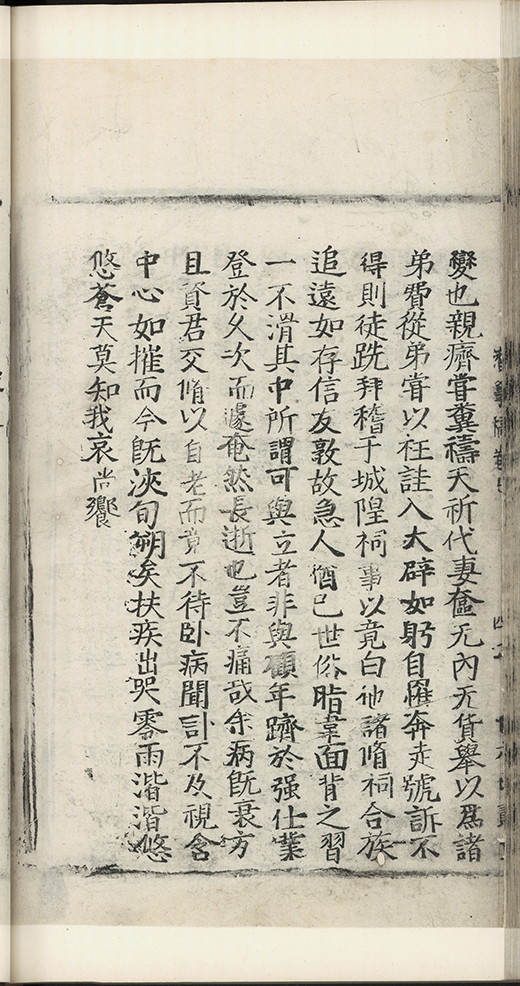 變也親癠甞糞禱天祈代妻奩无內无貨舉以爲諸
弟費從弟甞以枉詿入大辟如躬自罹奔走號訴不
得則徒跣拜稽于城隍祠事以竟白他諸脩祠合族
追遠如存信友敦故急人猶己世俗脂韋面背之習
一不滑其中所謂可與立者非與顧年躋於强仕業
登於乆次而遽奄然長逝也豈不痛㦲余病旣衰方
且資君交脩以自老而竟不待卧病聞訃不及視含
中心如摧而今旣浹旬朔矣扶疾出哭零雨湝湝悠
悠蒼天莫知我哀尙饗